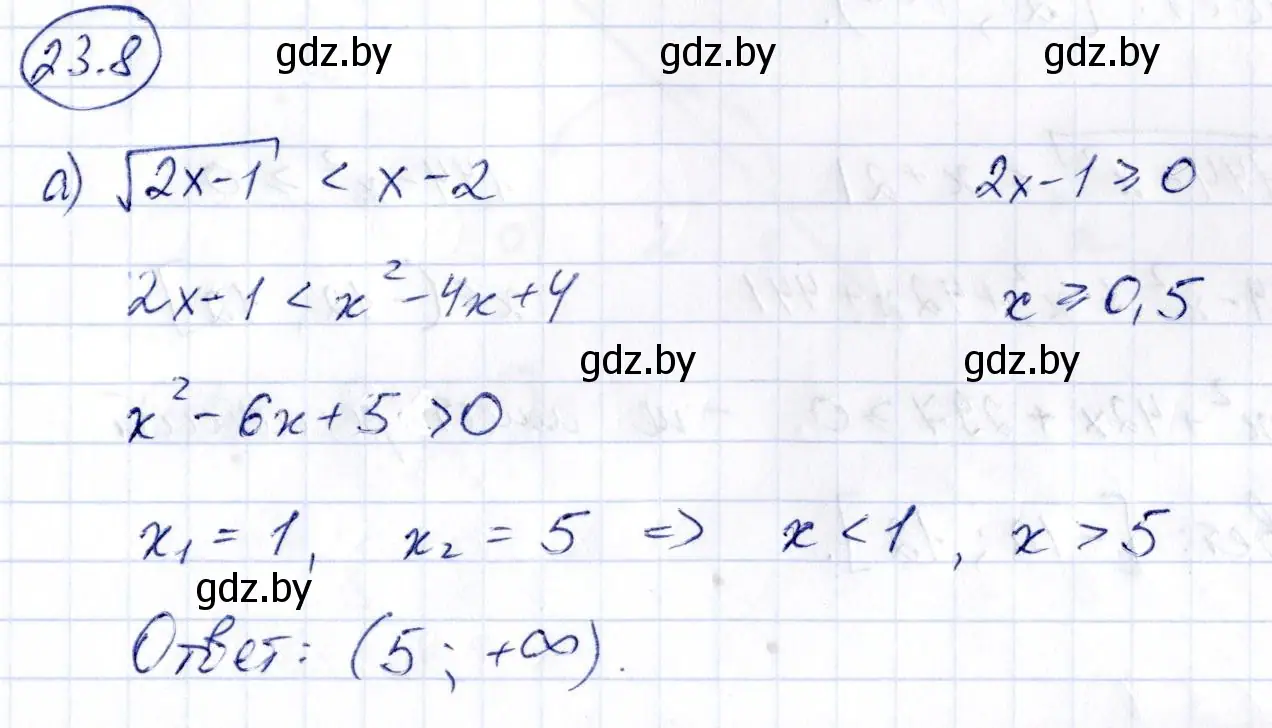 23.8 gdz.by gdz.by gdz.by
а) √(2x-1) < x-2 2x-1 ≥ 0
2x-1 < x²-4x+4 x ≥ 0,5
gdz.by gdz.by
x²-6x+5 >0
x₁ = 1, x₂ = 5 => x < 1, x > 5
gdz.by
Ответ: (5; +∞).